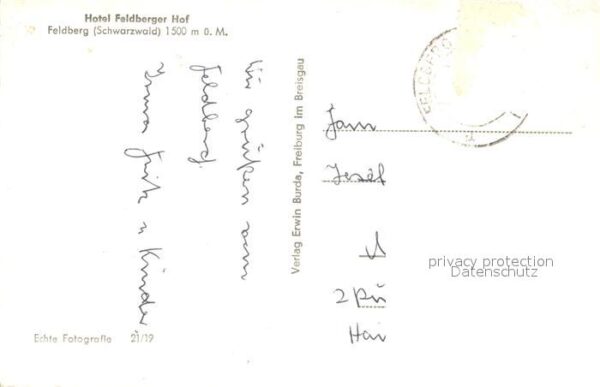 Hotel Feldberger Hof
Feldberg (Schwarzwald) 1500 m ü. M.
Wir grüßen vom
Feldberg.
Fritz u Kinder
Echte Fotografie 21/19
Verlag Erwin Burda, Freiburg im Breisgau
FELDBERG
Fam
Josef
2
privacy protection
Datenschutz